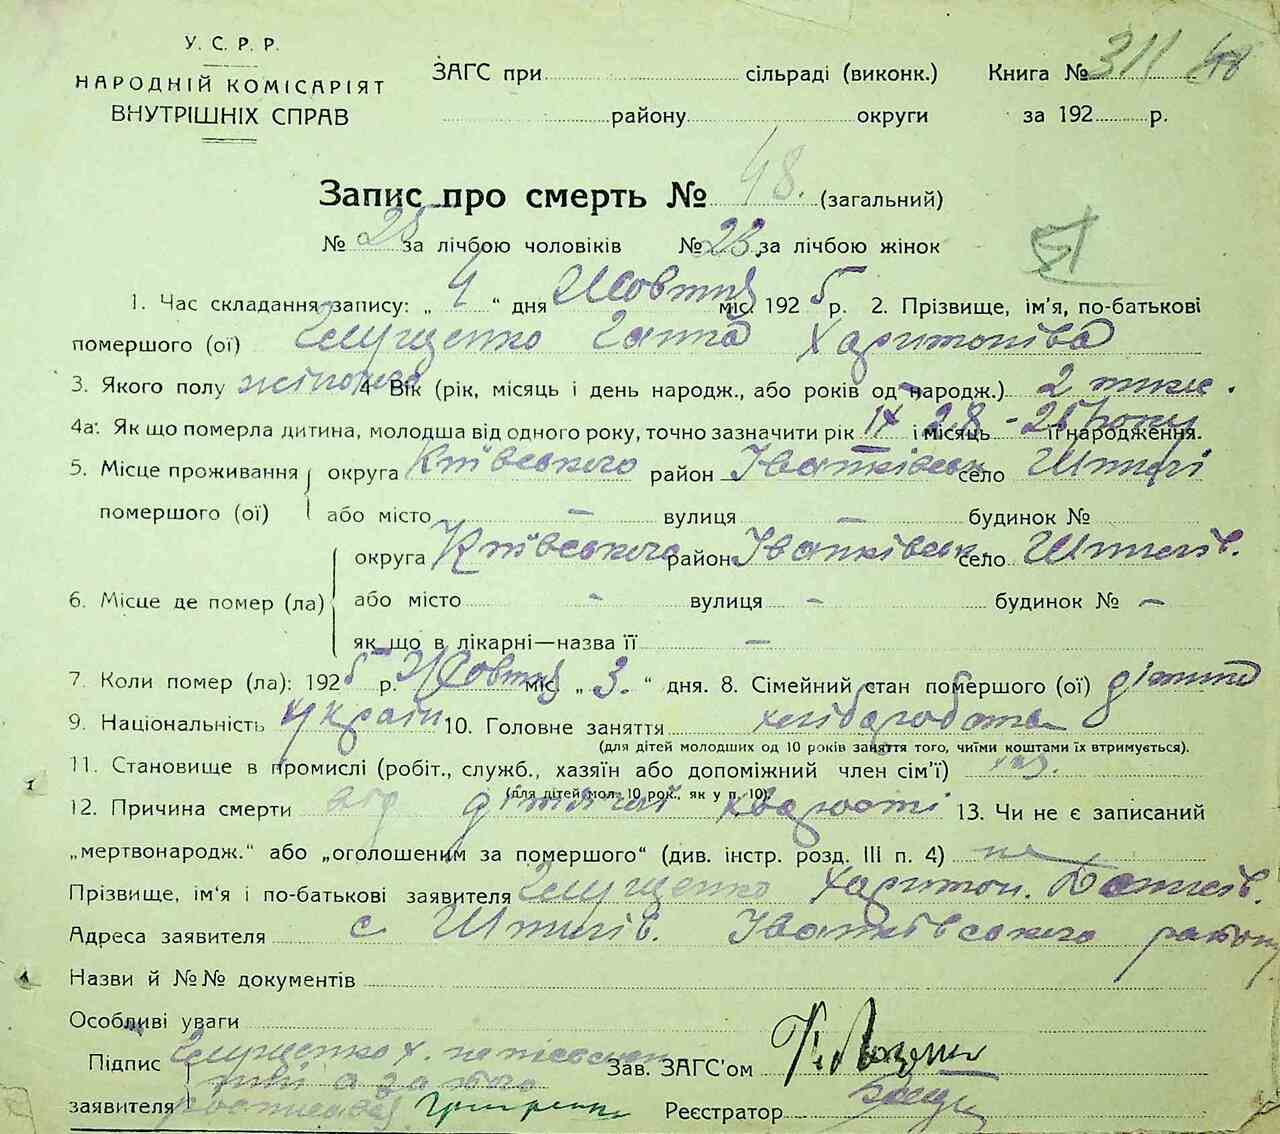 У. С. Р. Р.
НАРОДНІЙ КОМІСАРІЯТ
ВНУТРІШНІХ СПРАВ
ЗАГС при сільраді (виконк.) Книга № 311 48
району округи за 192 р.
Запис про смерть № 48. (загальний)
№ 25 за лічбою чоловіків № 23. за лічбою жінок
1. Час складання запису: „ 4 “ дня Жовтня міс. 1925 р. 2. Прізвище, ім'я, по-батькові
помершого (ої) Ганна Харитонівна
3. Якого полу жіночого 4 Вік (рік, місяць і день народж., або років од народж.) 2 тижн.
4а. Як що померла дитина, молодша від одного року, точно зазначити рік ІХ 28 - 25 року і місяць її народження.
5. Місце проживання округа Київського район Іванківськ село
помершого (ої) або місто – вулиця – будинок №
округа Київського район Іванківськ. село
6. Місце де помер (ла) або місто - вулиця – будинок № –
як що в лікарні—назва її –
7. Коли помер (ла): 1925 р. Жовтня міс. „ 3. “ дня. 8. Сімейний стан помершого (ої) дитина
9. Національність Україн 10. Головне заняття хліборобство
(для дітей молодших од 10 років заняття того, чиїми коштами їх втримується).
11. Становище в промислі (робіт., служб., хазяїн або допоміжний член сім'ї) хаз.
(для дітей мол. 10 рок., як у п. 10).
12. Причина смерти від дитячої 13. Чи не є записаний
„мертвонародж.“ або „оголошеним за помершого“ (див. інстр. розд. III п. 4) не
Прізвище, ім'я і по-батькові заявителя Харитон.
Адреса заявителя с. Іванківського району
Назви й №№ документів
Особливі уваги
Підпис Х. Зав. ЗАГС'ом
а за його
заявителя Реєстратор